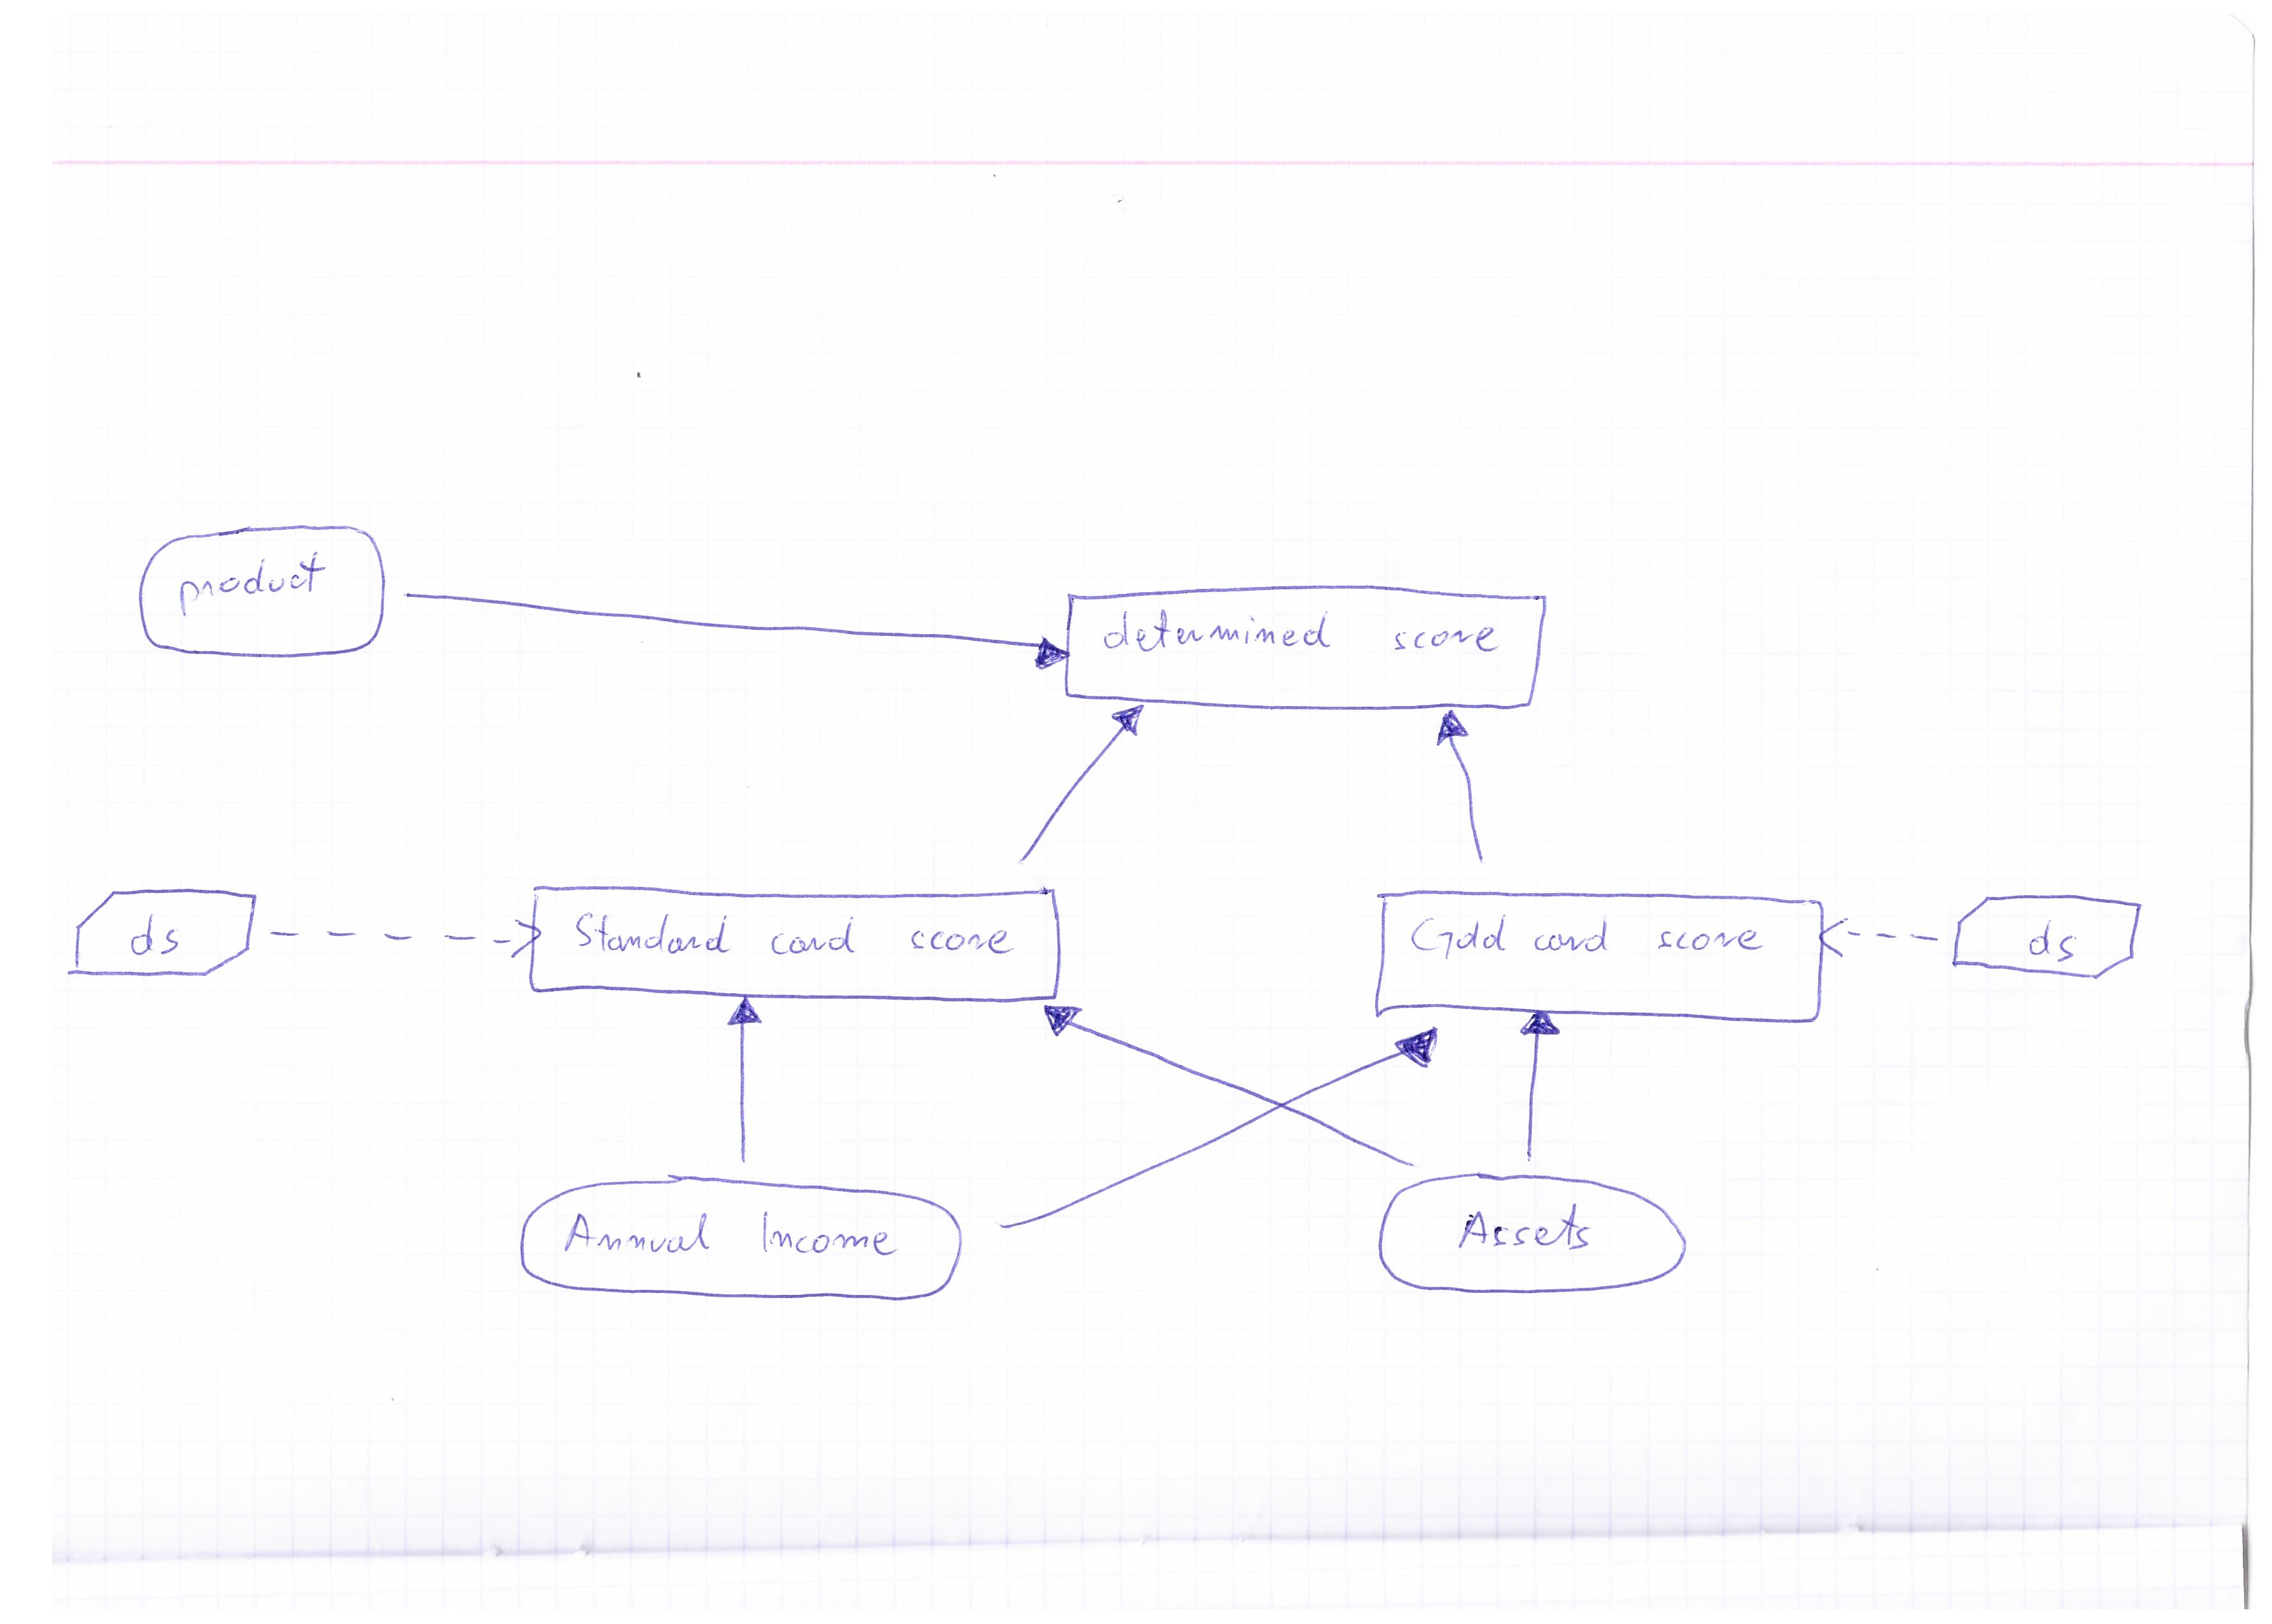 product
determined score
ds
Standard card score
Gold card score
ds
Annual Income
Assets